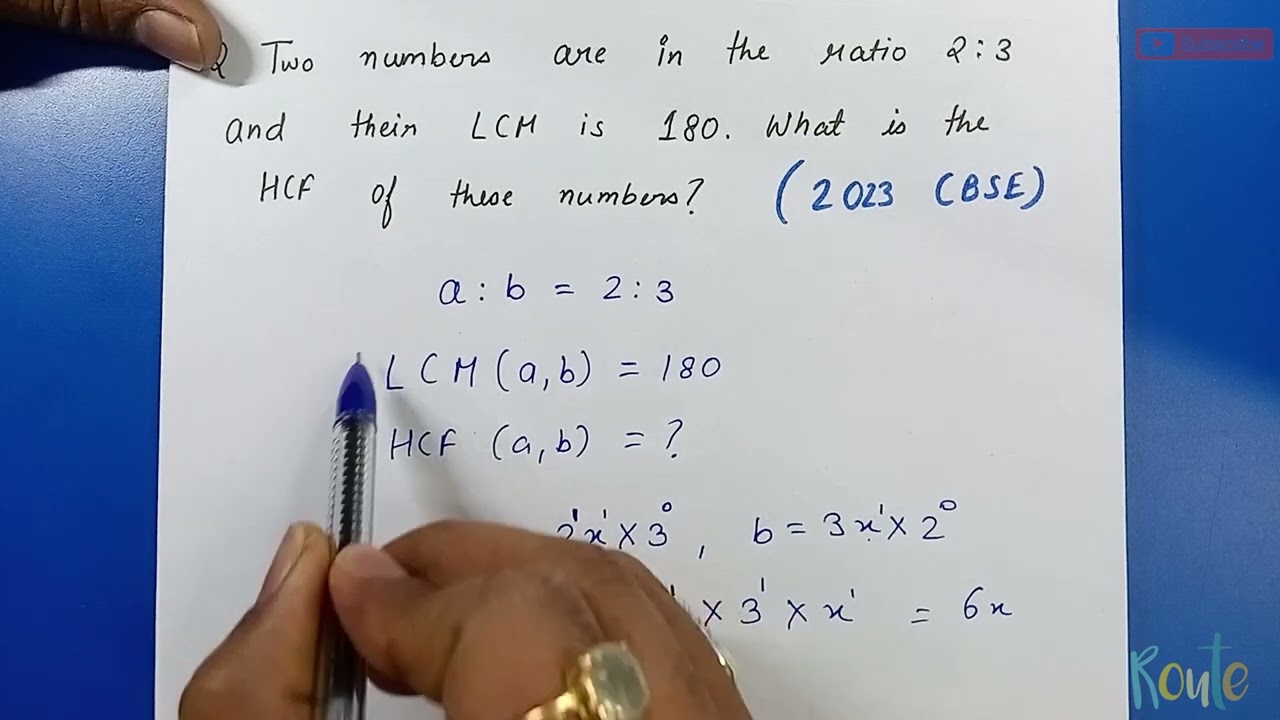 Q Two numbers are in the ratio 2:3
and their LCM is 180. What is the
HCF of these numbers? (2023 CBSE)
a : b = 2 : 3
LCM (a,b) = 180
HCF (a,b) = ?
2¹x¹ × 3⁰ , b = 3x¹ × 2⁰
× 3¹ × x¹ = 6x
Subscribe
Route